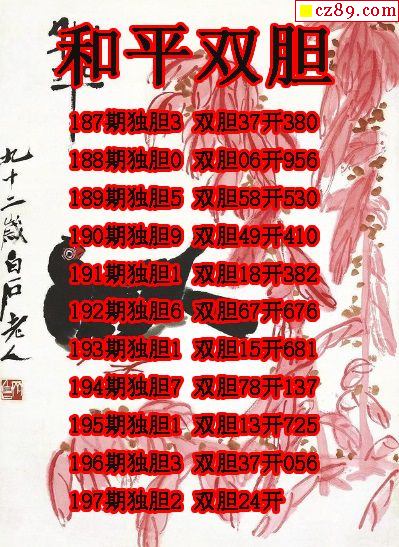 cz89.com
和平双胆
187期独胆3 双胆37开380
188期独胆0 双胆06开956
189期独胆5 双胆58开530
190期独胆9 双胆49开410
191期独胆1 双胆18开382
192期独胆6 双胆67开676
193期独胆1 双胆15开681
194期独胆7 双胆78开137
195期独胆1 双胆13开725
196期独胆3 双胆37开056
197期独胆2 双胆24开
九十二岁白石老人